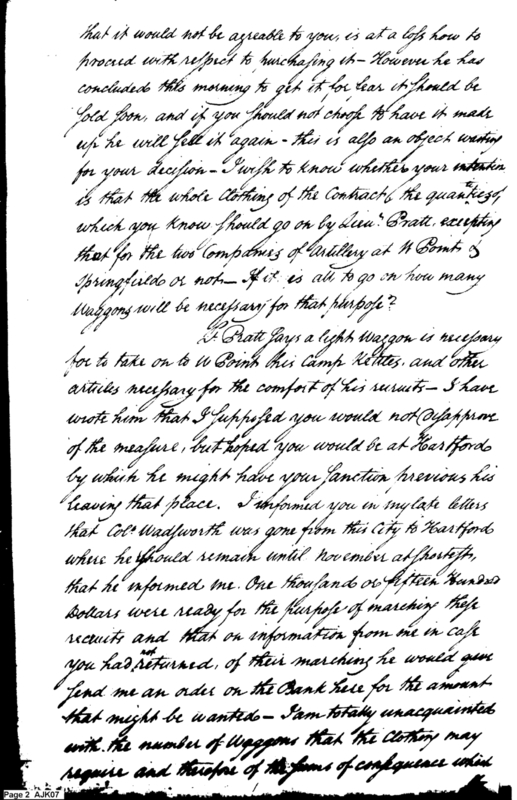 that it would not be agreable to you, is at a loss how to
proceed with respect to purchasing it – However he has
concluded this morning to get it for fear it should be
sold soon, and if you should not choose to have it made
up he will sell it again – this is also an object waiting
for your decision – I wish to know whether your intention
is that the whole Clothing of the Contract, the quantities of
which you know should go on by Lieut. Pratt, excepting
that for the two Companies of Artillery at W Point &
Springfield or not – If it is all to go on how many
Waggons will be necessary for that purpose?
Lt Pratt says a light Waggon is necessary
for to take on to W Point his Camp Kettles, and other
articles necessary for the comfort of his recruits – I have
wrote him that I supposed you would not disapprove
of the measure, but hoped you would be at Hartford
by which he might have your sanction previous his
leaving that place. I informed you in my late letters
that Colo. Wadsworth was gone from this City to Hartford
where he should remain until November at shortest,
that he informed me, One thousand or fifteen Hundred
Dollars were ready for the purpose of marching these
recruits and that on information from me in case
you had not returned, of their marching he would give
send me an order on the Bank here for the amount
that might be wanted – I am totally unacquainted
with the number of Waggons that the Clothing may
require and therefore of the sums of consequence which
Page 2 AJK07